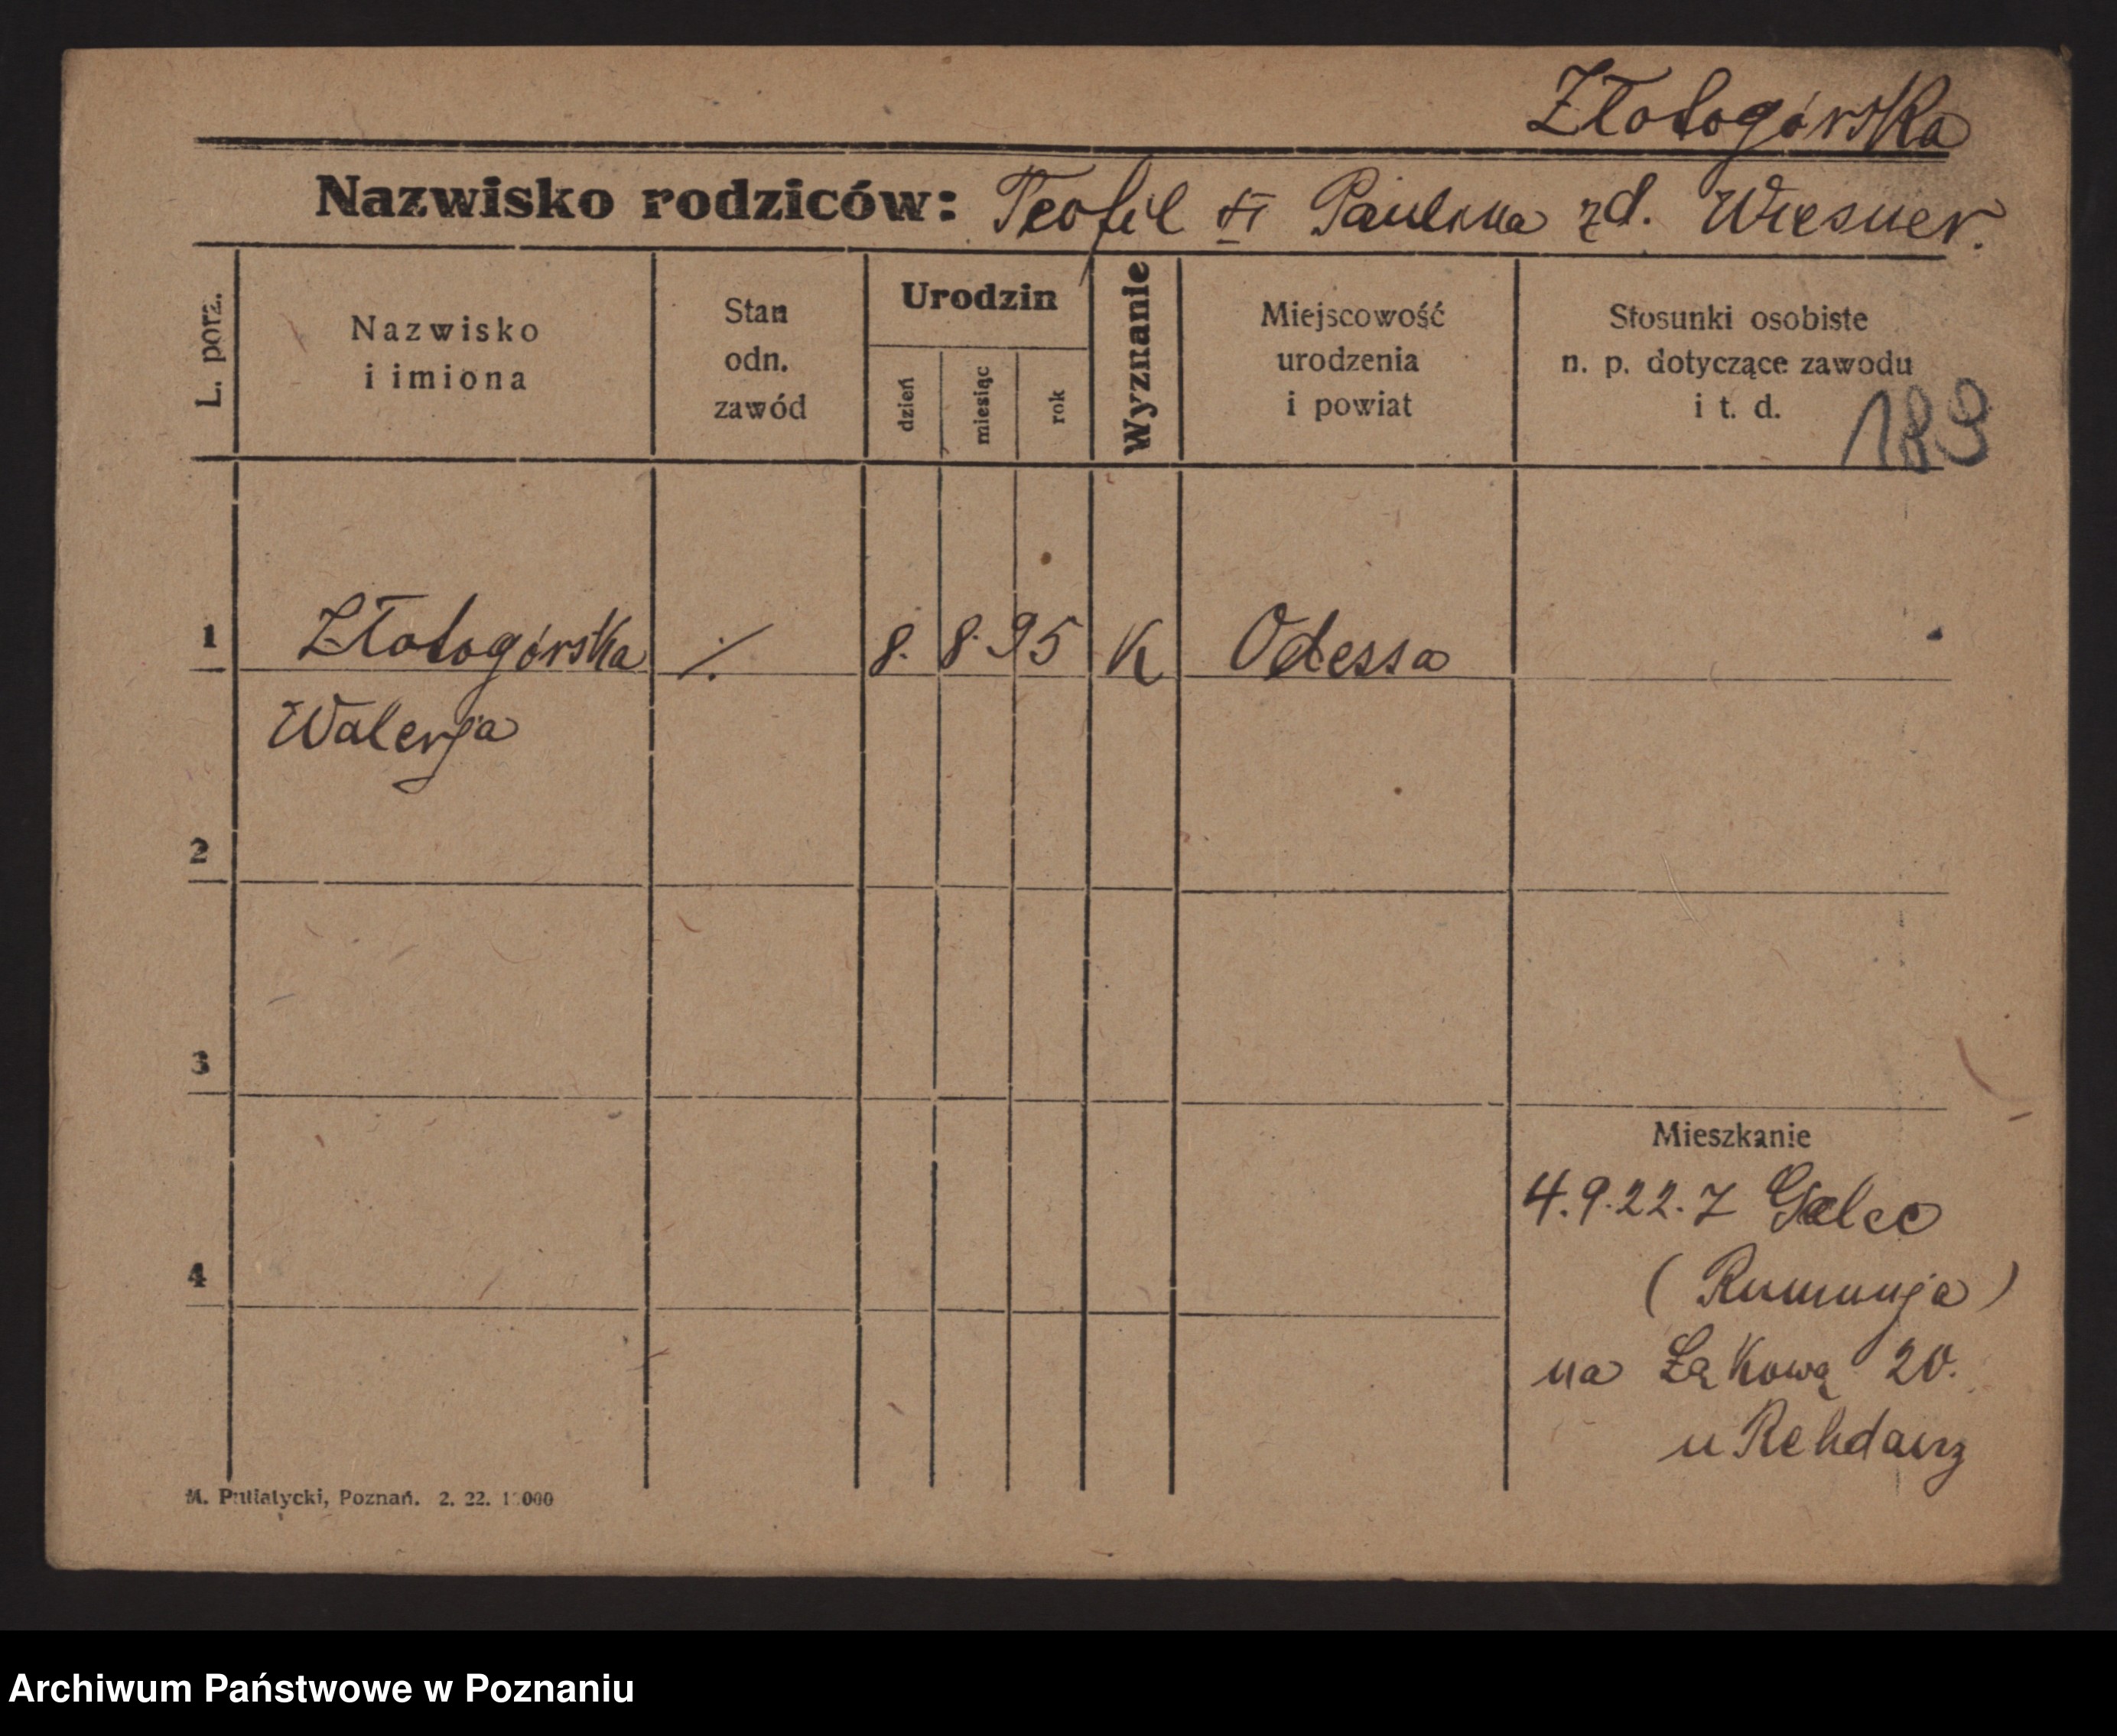 Złotogórska
Nazwisko rodziców: Teofil i Paulina zd. Wiesner.
L. porz.
Nazwisko
i imiona
Stan
odn.
zawód
Urodzin
dzień
miesiąc
rok
Wyznanie
Miejscowość
urodzenia
i powiat
Stosunki osobiste
n. p. dotyczące zawodu
i t. d.
189
1 Złotogórska ./. 8. 8. 95 K Odessa
Walerja
2
3
4
Mieszkanie
4.9.22. Z Galec
(Rumunja)
na Łąkową 20.
u Rehdanz
M. Putiatycki, Poznań. 2. 22.
Archiwum Państwowe w Poznaniu